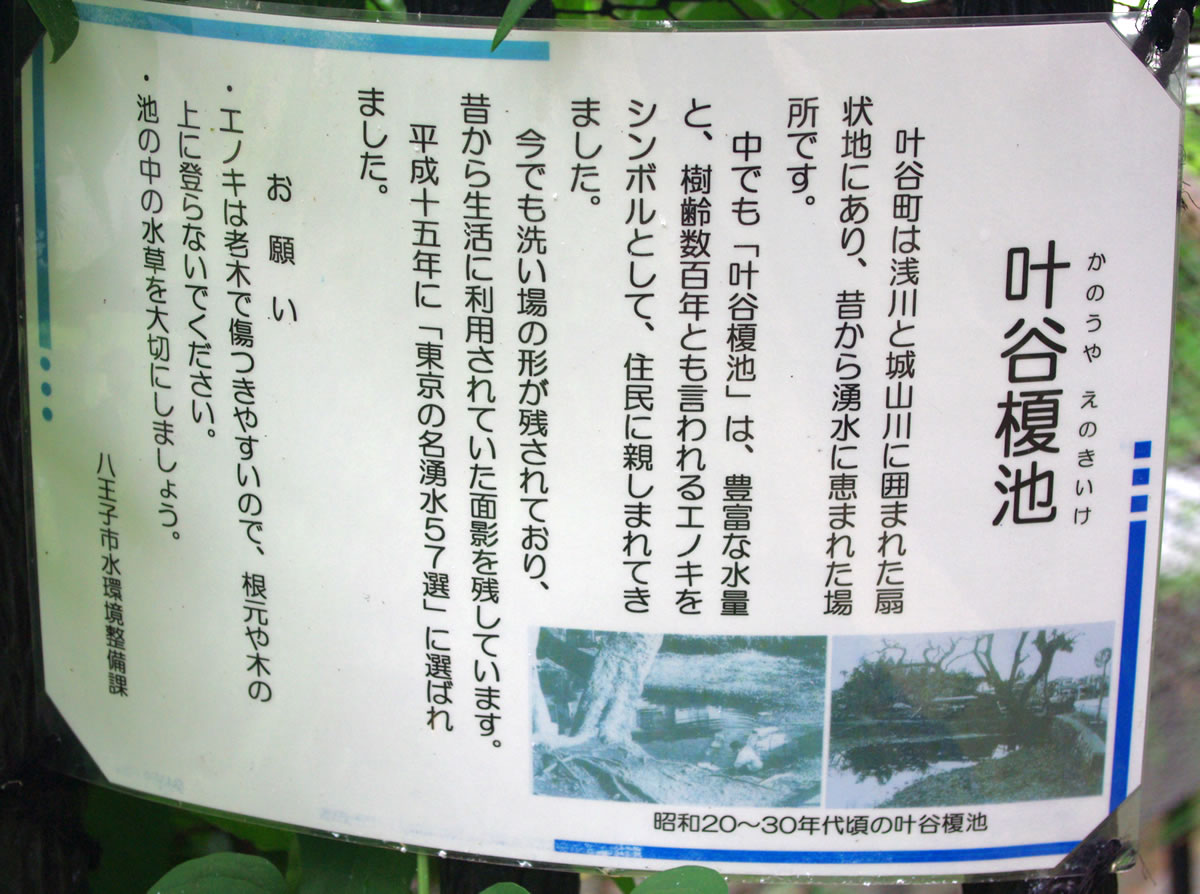 かのうや えのきいけ
叶谷榎池
叶谷町は浅川と城山川に囲まれた扇
状地にあり、昔から湧水に恵まれた場
所です。
中でも「叶谷榎池」は、豊富な水量
と、樹齢数百年とも言われるエノキを
シンボルとして、住民に親しまれてき
ました。
今でも洗い場の形が残されており、
昔から生活に利用されていた面影を残しています。
平成十五年に「東京の名湧水57選」に選ばれ
ました。
お願い
・エノキは老木で傷つきやすいので、根元や木の
上に登らないでください。
・池の中の水草を大切にしましょう。
八王子市水環境整備課
昭和20～30年代頃の叶谷榎池